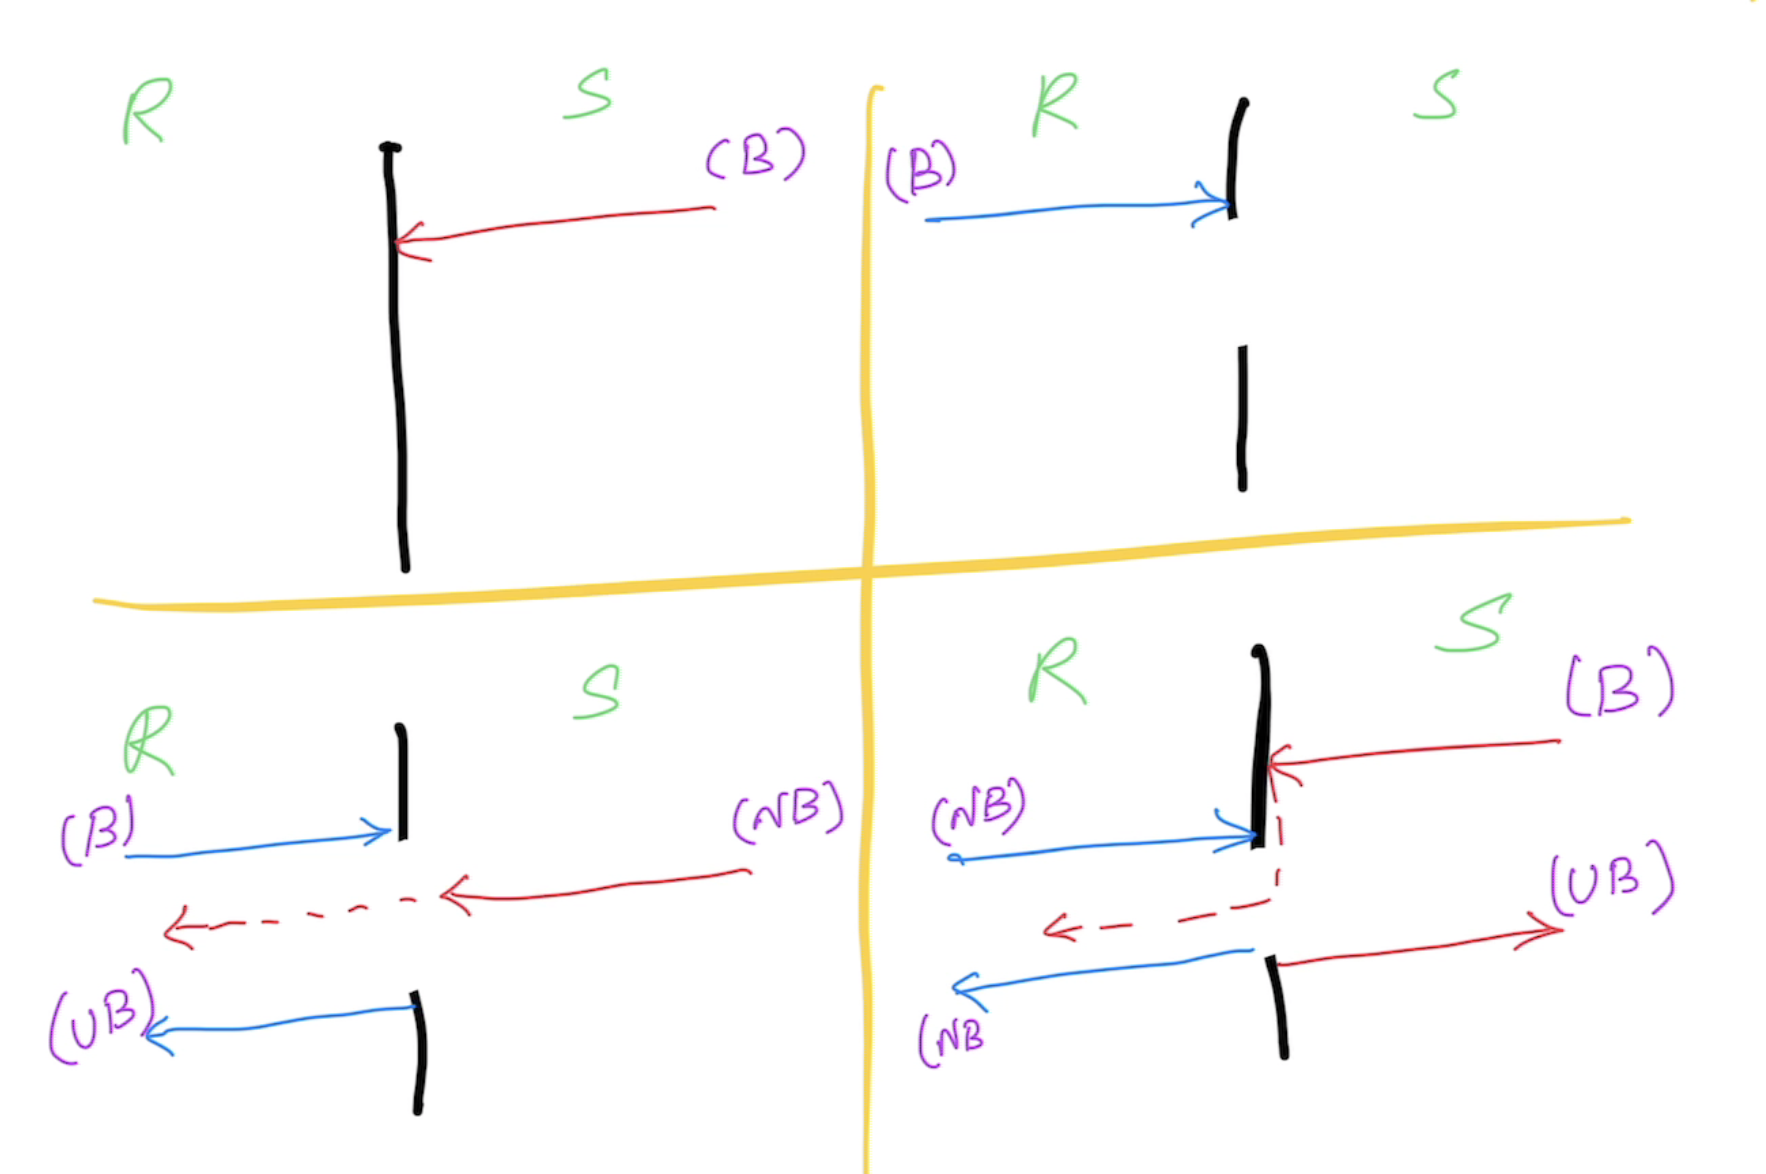 R S
(B)
R S
(B)
R S
(B) (NB)
(UB)
R S
(B)
(NB)
(UB)
(NB